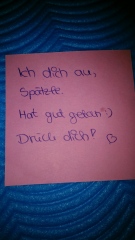 Ich dich au,
Spätzle.
Hat gut getan :)
Drück dich!
B